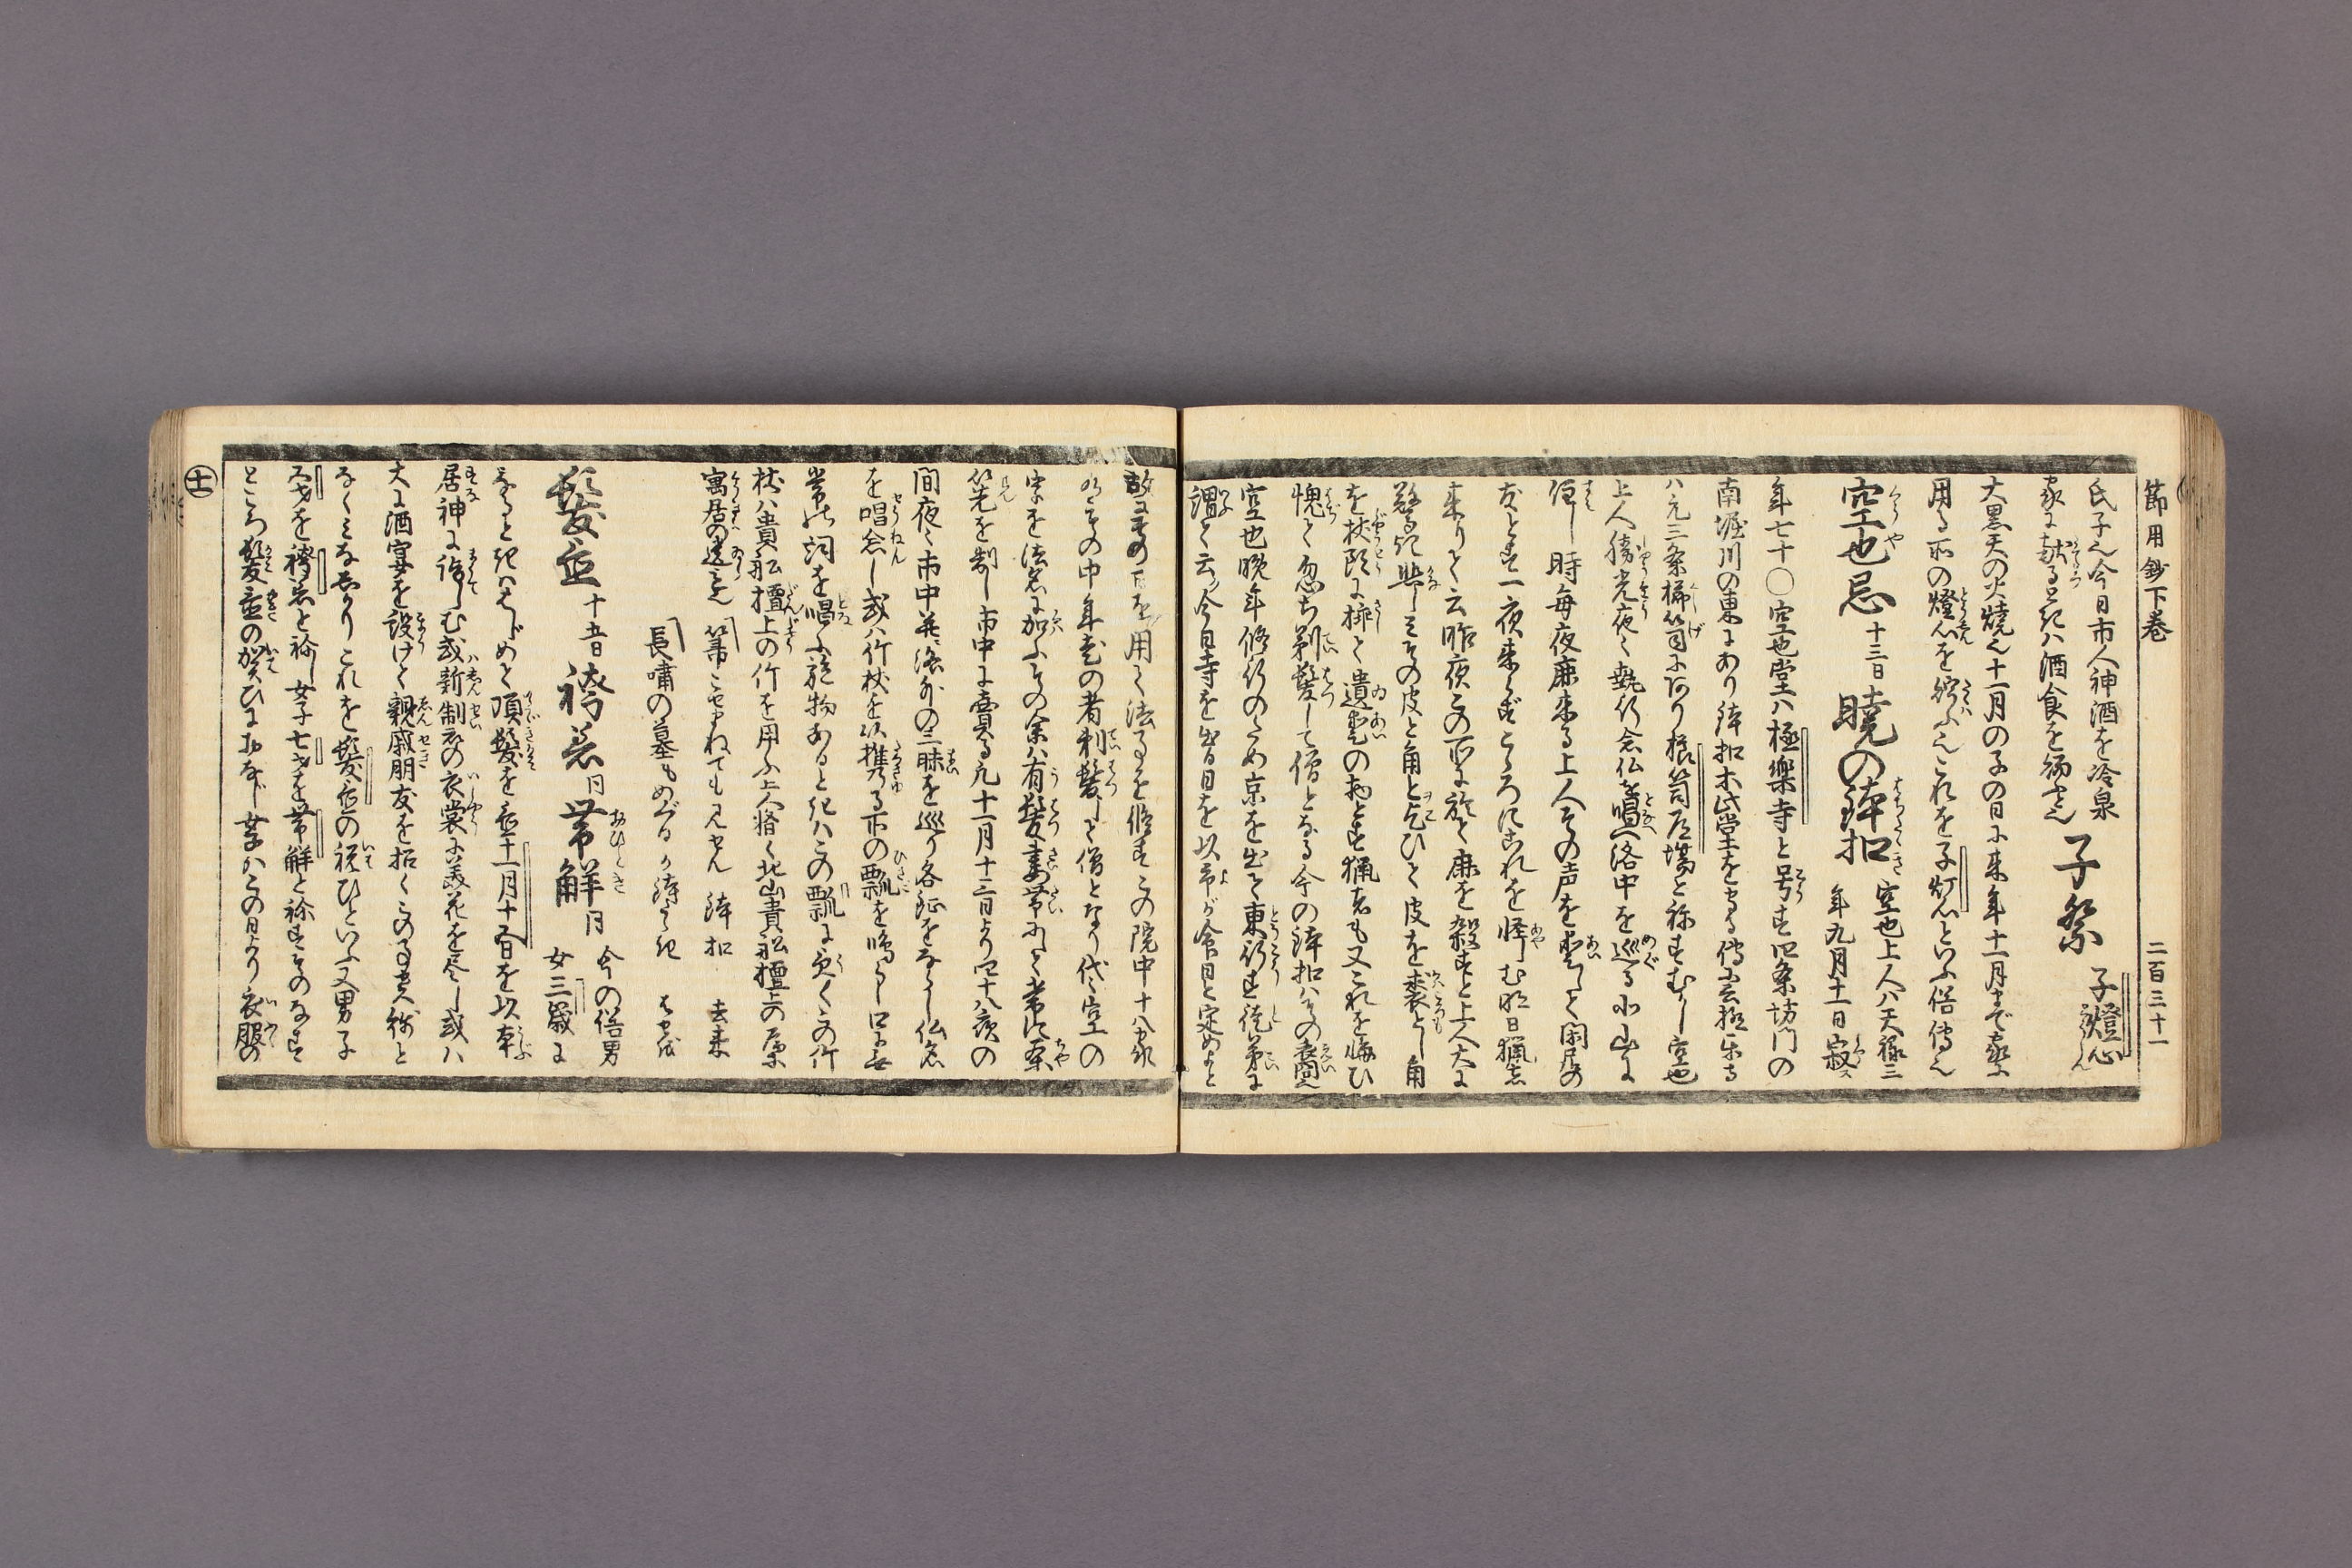 節用鈔下巻 二百三十一
氏子也今日市人神酒を冷泉
家に献る時は酒食を賜ふと也 子祭 子燈心
大黒天の火焼也十一月の子の日に来年十一月まで家に
用る所の燈心を調ふ也これを子灯心といふ俗傳也
空也忌 十三日 暁の鉢扣 空也上人ハ天禄三
年九月十一日寂ス
年七十〇空也堂ハ極樂寺と号す四条坊門の
南堀川の東にあり鉢扣
ハ元三条櫛笥にあり 道場と称すむかし空也
上人勝光夜々執行念仏を唱へ洛中を巡る北山に
住し時毎夜鹿来る上人その声を愛して閑居の
友とす一夜来らずこころにこれを怪む明日猟者
来りて云昨夜この所に於て鹿を殺すと上人大に
驚き悲しミその皮と角とを乞ひて皮を裘とし角
を杖頭に挿て遺愛の物とす猟者も又これを悔ひ
愧て忽ち剃髪して僧となる今の鉢扣ハその裔也
空也晩年修行のため京を出て東行す徒弟に
謂て云今日寺を出る日を以命日と定めよと
故にその日を用て法事を修すこの院中十八家
ありその中年老の者剃髪して僧となり代々空の
字を法名に加ふその余ハ有髪妻帯にて常に茶
筅を制し市中に賣る凡十一月十三日より四十八夜の
間夜々市中并洛外の三昧を巡り各鉦をならし仏名
を唱念し或ハ竹杖を以携る所の瓢を鳴らし口に無
常の詞を唱ふ施物あるときハこの瓢に受くこの竹
杖ハ貴舩檀上の竹を用ふ上人潜く北山貴舩檀上の原
寓居の遺意也 箒こせまねても見せん鉢扣 去来
長嘯の墓もめぐるか鉢たゝき はせを
髪置 十五日 袴着 同 帯解 同 今の俗男
女三歳に
なるときハはじめて頂髪を置十一月十五日を以本
居神に詣しむ或新制衣の衣裳に美花を尽し或ハ
大に酒宴を設けて親戚朋友を招くこの事貴賎と
なくミなしかりこれを髪置の祝ひといふ又男子
五才を袴着と称し女子七才を帯解と称すそのなす
ところ髪置の賀ひにおなじ女子ハこの日より衣服の
十一